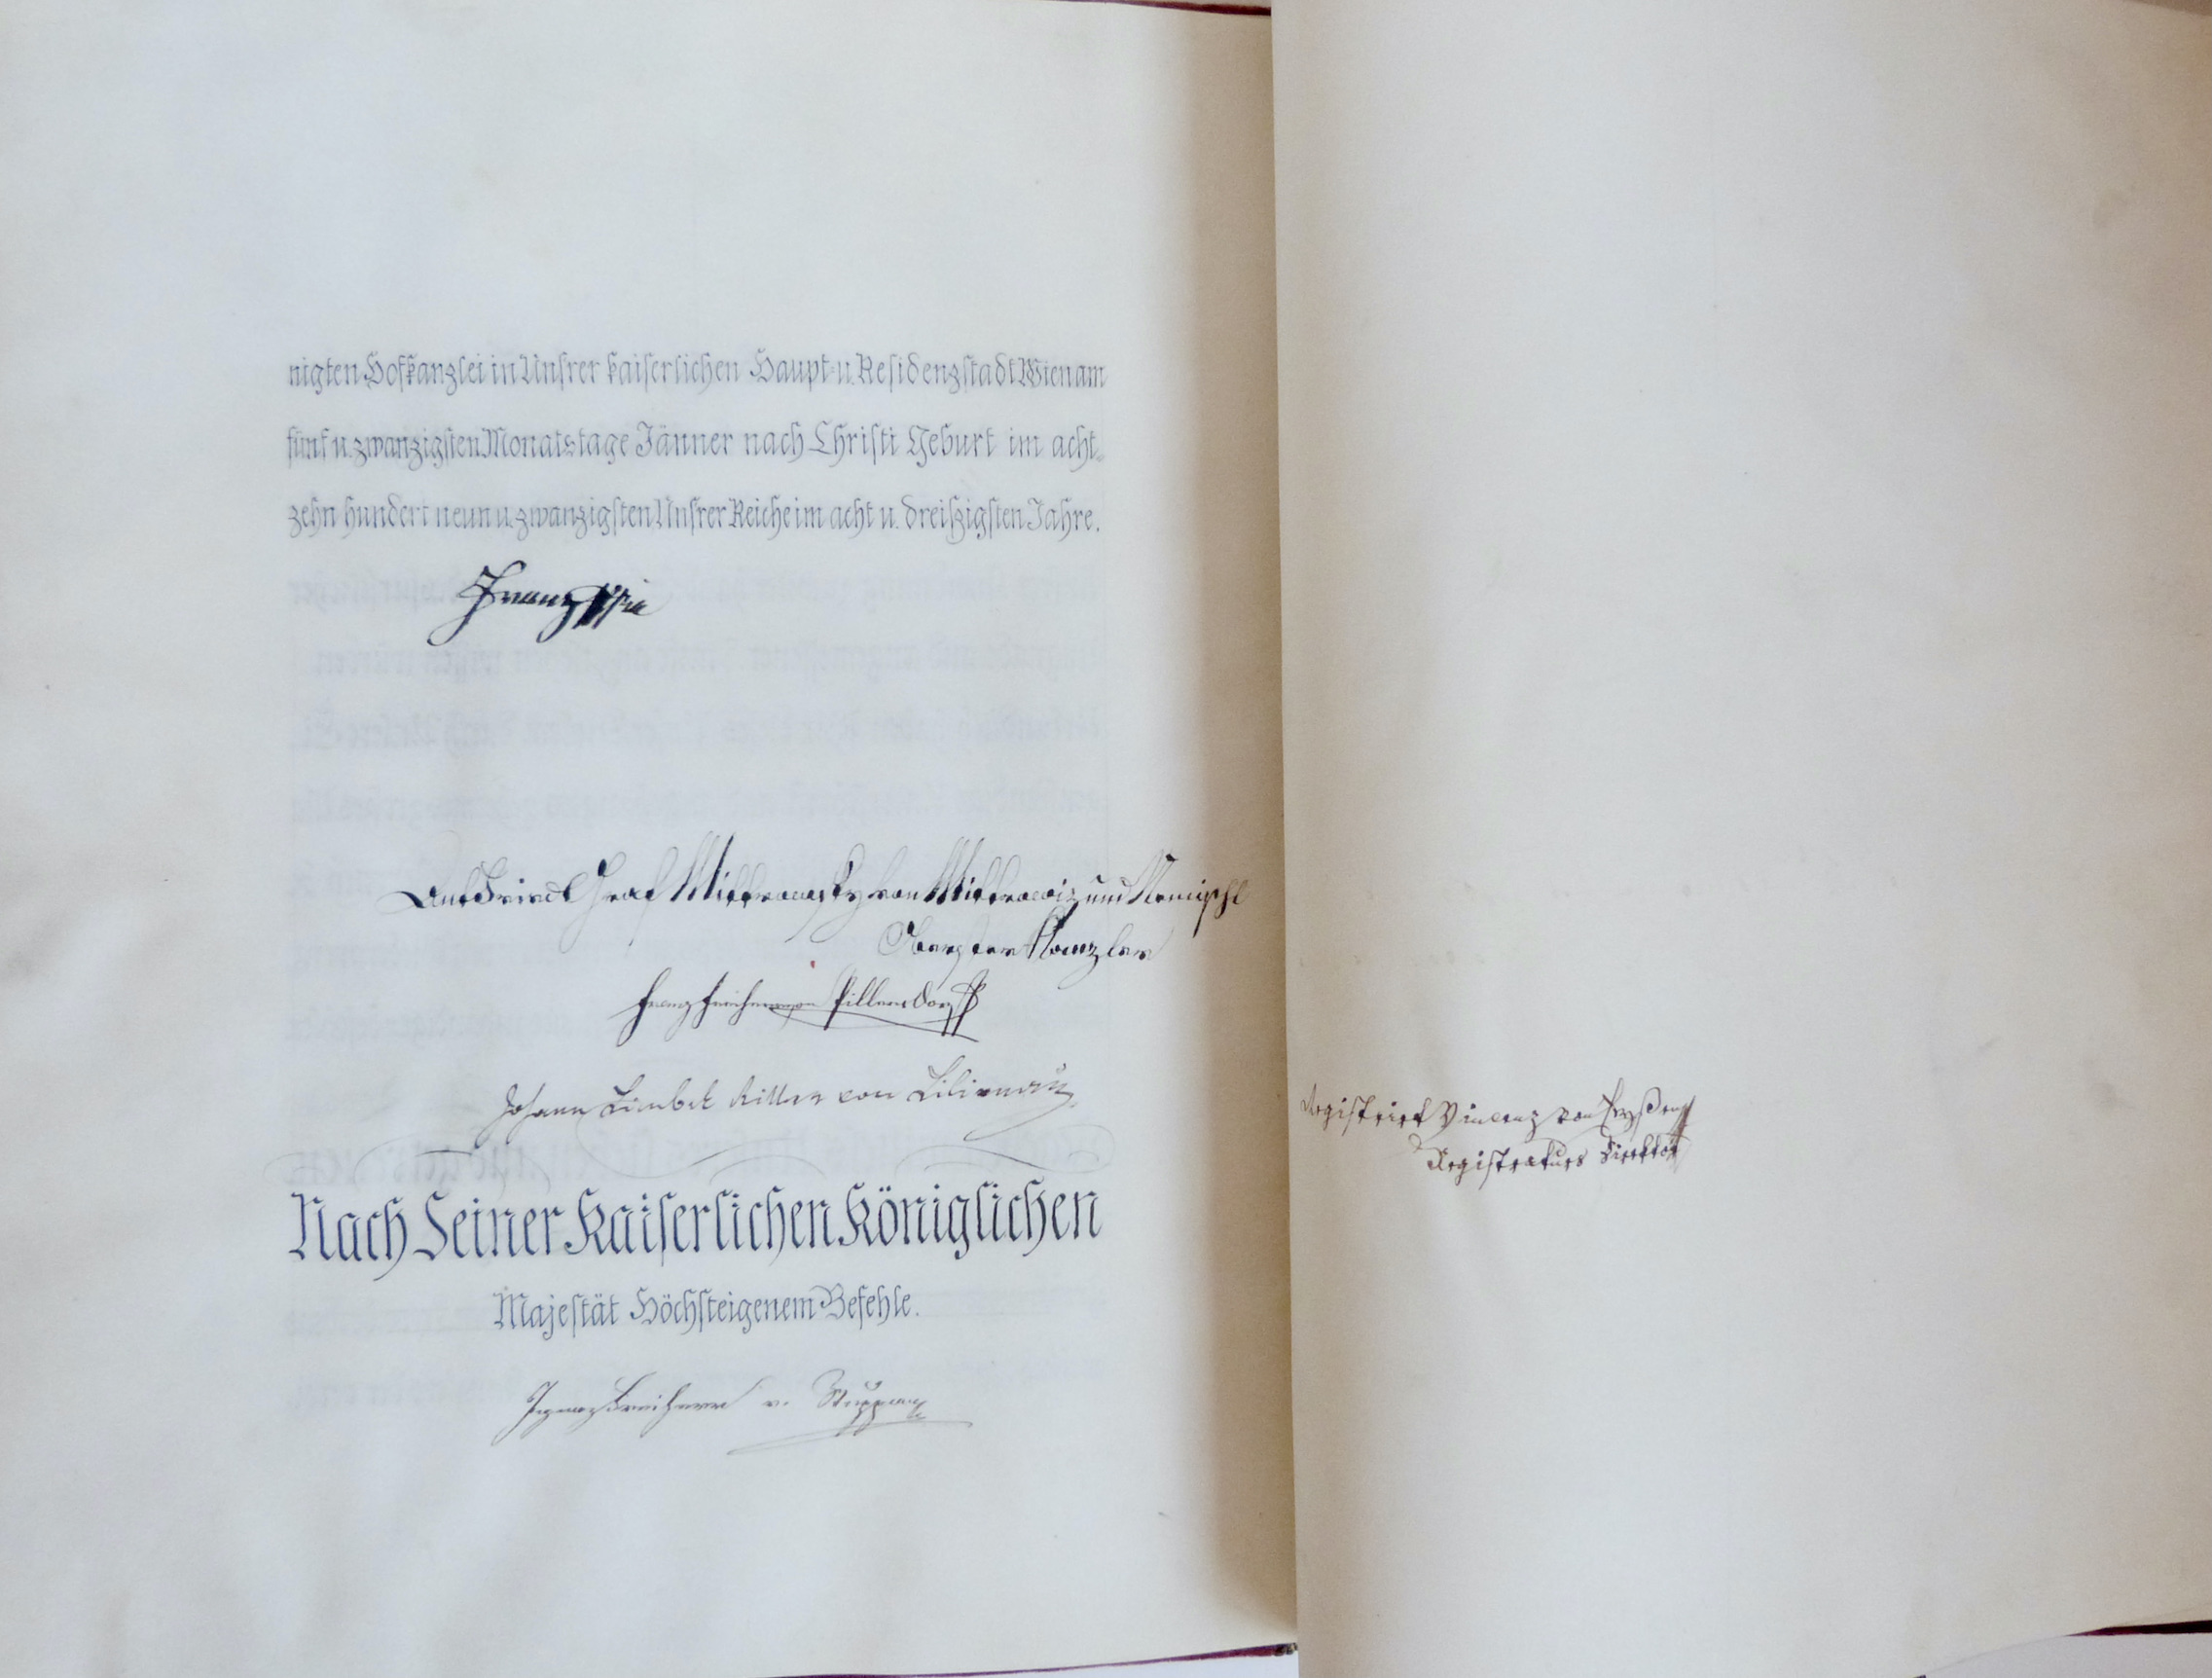 nigten Hofkanzlei in Unsrer kaiserlichen Haupt- u. Residenzstadt Wien am
fünf u. zwanzigsten Monatstage Jänner nach Christi Geburt im acht-
zehn hundert neun u. zwanzigsten Unsrer Reiche im acht u. dreißigsten Jahre.
Franz
Ant Friedr Graf Mittrowsky von Mittrowiz und Nemischl
Oberster Kanzler
Franz Freiherr von Pillersdorff
Johann Limbek Ritter von Lilienau
Nach Seiner Kaiserlichen Königlichen
Majestät Höchsteigenem Befehle.
Ignaz Freiherr v.
Registrirt Vincenz von
Registraturs Direktor